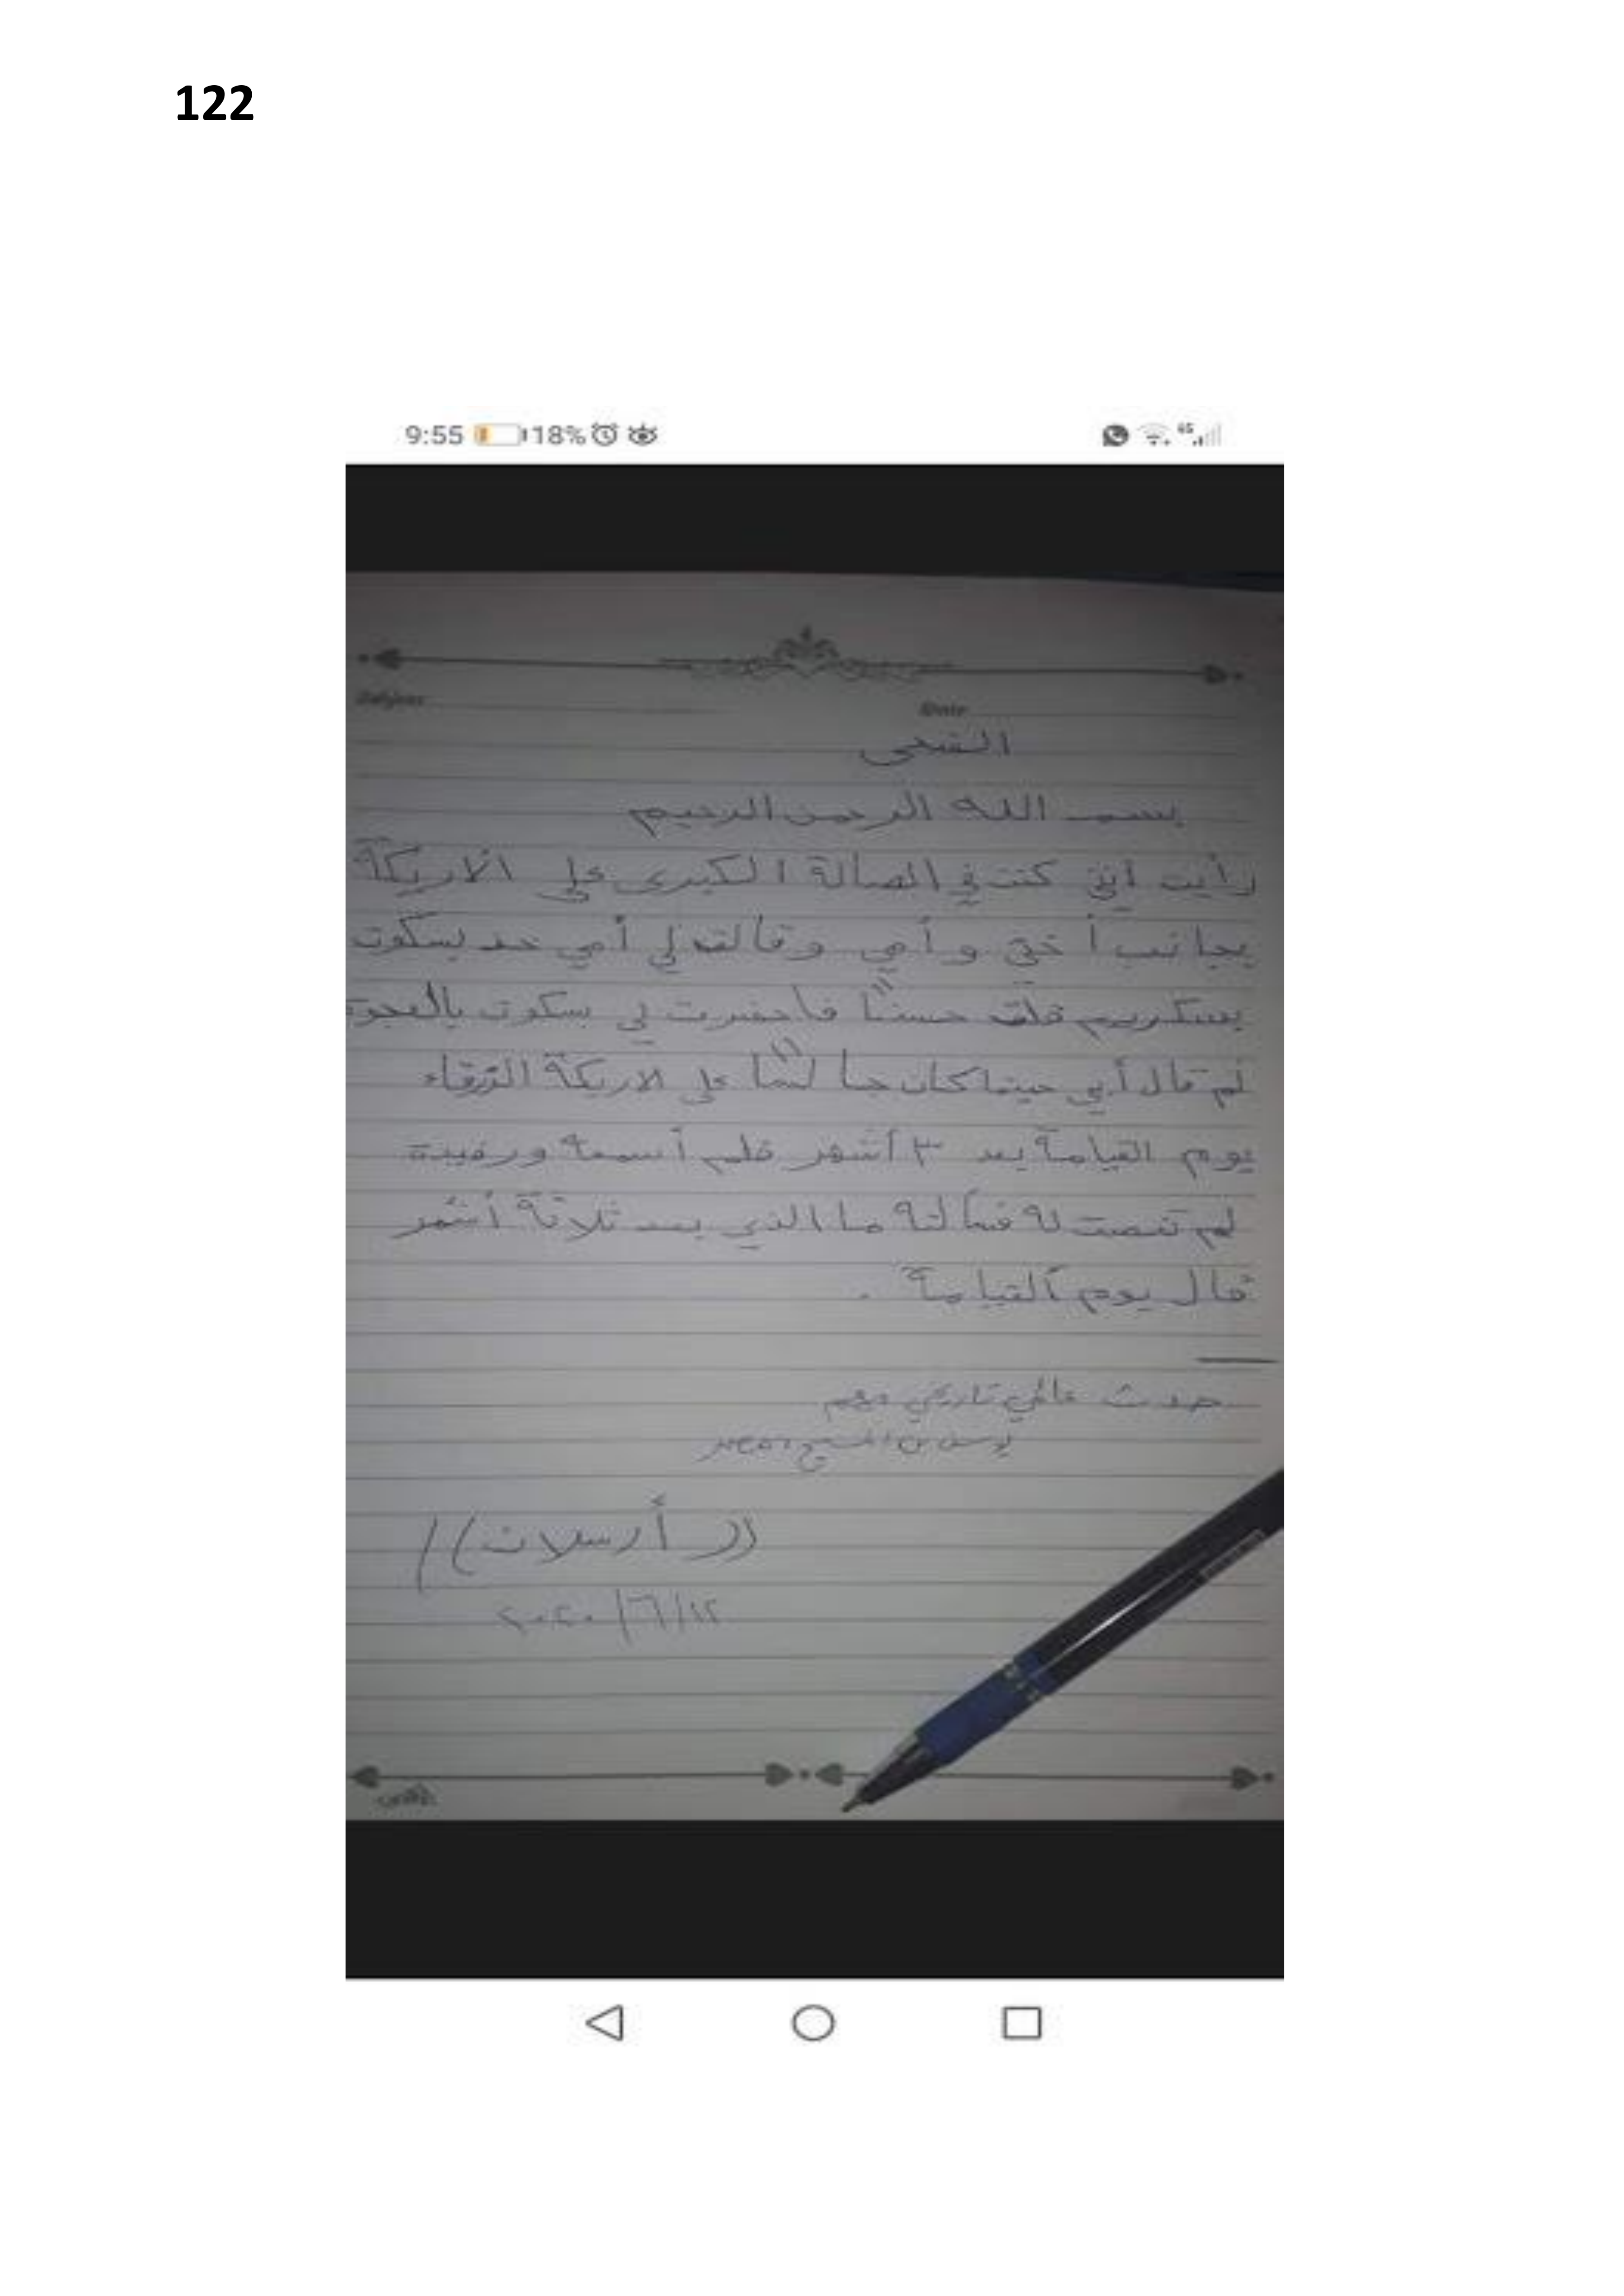 122
9:55 18%
Subject
Date
الضحى
بسم الله الرحمن الرحيم
رأيت أني كنت في الصالة الكبرى على الأريكة
بجانب أختي وأمي وقالت لي أمي خد بسكوت
بسكريم قلت حسناً فاحضرت لي بسكوت بالعجوة
ثم قال أبي حينما كان جالساً على الاريكة الزرقاء
يوم القيامة بعد ٣ أشهر فلم أسمعه ورفيدة
لم تنصت له فسألته ما الذي بعد ثلاثة أشهر
قال يوم القيامة .
حدث عالمي تاريخي مهم
يوسف بن المسيح مصر
((أرسلان))
١٢/٦/٢٠٢٠